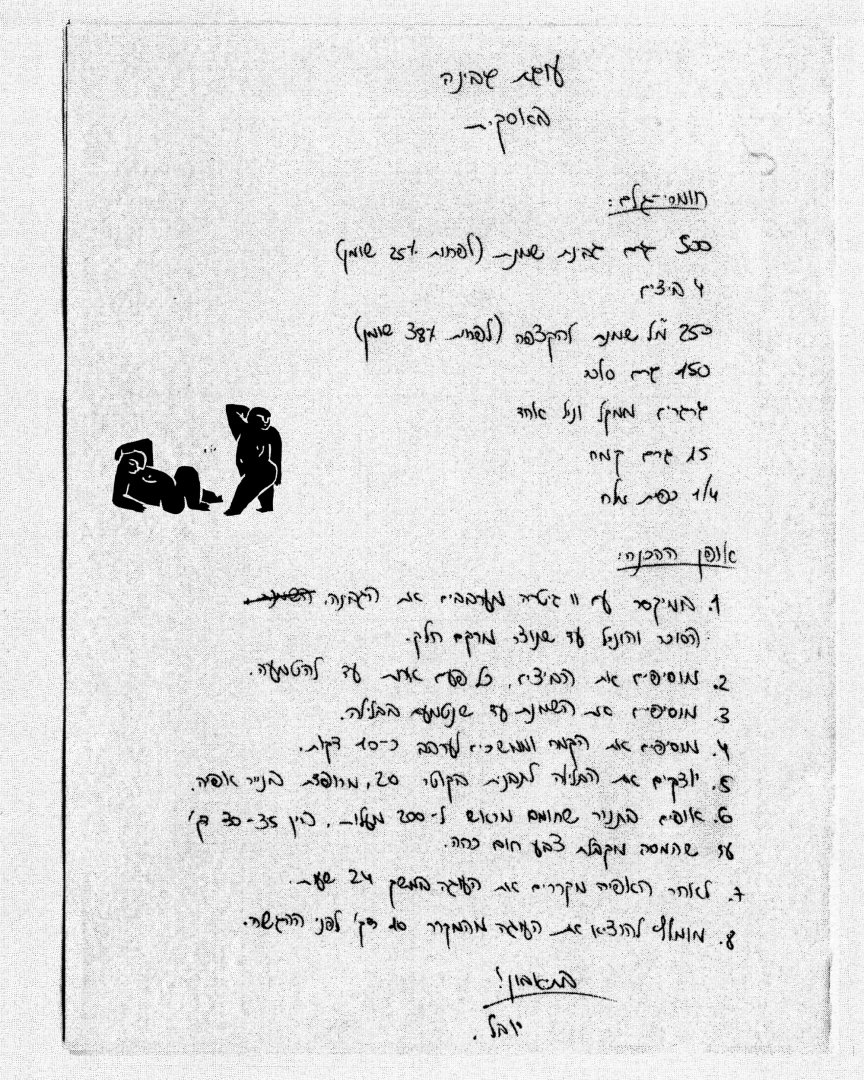 עוגת גבינה
באסקית
חומרי-גלם:
300 גרם גבינת שמנת (לפחות 25% שומן)
4 ביצים
250 מ"ל שמנת להקצפה (לפחות 38% שומן)
150 גרם סוכר
גרגרים ממקל וניל אחד
15 גרם קמח
1/4 כפית מלח
אופן ההכנה:
1. במיקסר עם וו גיטרה מערבבים את הגבינה,
הסוכר והוניל עד שנוצר מרקם חלק.
2. מוסיפים את הביצים, כל פעם אחת עד להטמעה.
3. מוסיפים את השמנת עד שנטמעת בבלילה.
4. מוסיפים את הקמח וממשיכים לערבב כ-10 דקות.
5. יוצקים את הבלילה לתבנית בקוטר 20, מרופדת בנייר אופה.
6. אופים בתנור שחומם מראש ל-200 מעלות, בין 30-35 דק'
עד שהמסה מקבלת צבע חום כהה.
7. לאחר האפיה מקררים את העוגה במשך 24 שעות.
8. מומלץ להוציא את העוגה מהמקרר 10 דק' לפני ההגשה.
בתיאבון!
יובל.